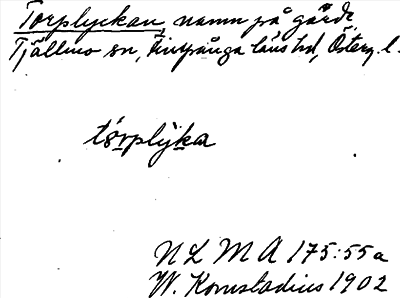 Torplyckan, namn på gärde,
Tjällmo sn, Finspånga läns hd, Österg. l.
torplyka
N L M A 175:55a
W. Kornstadius 1902